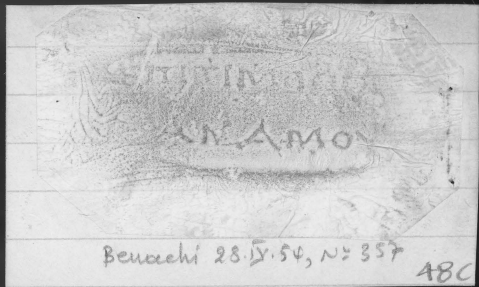 ΑΝΑΜΟ
Benachi 28.IV.54, Nº 357
48C